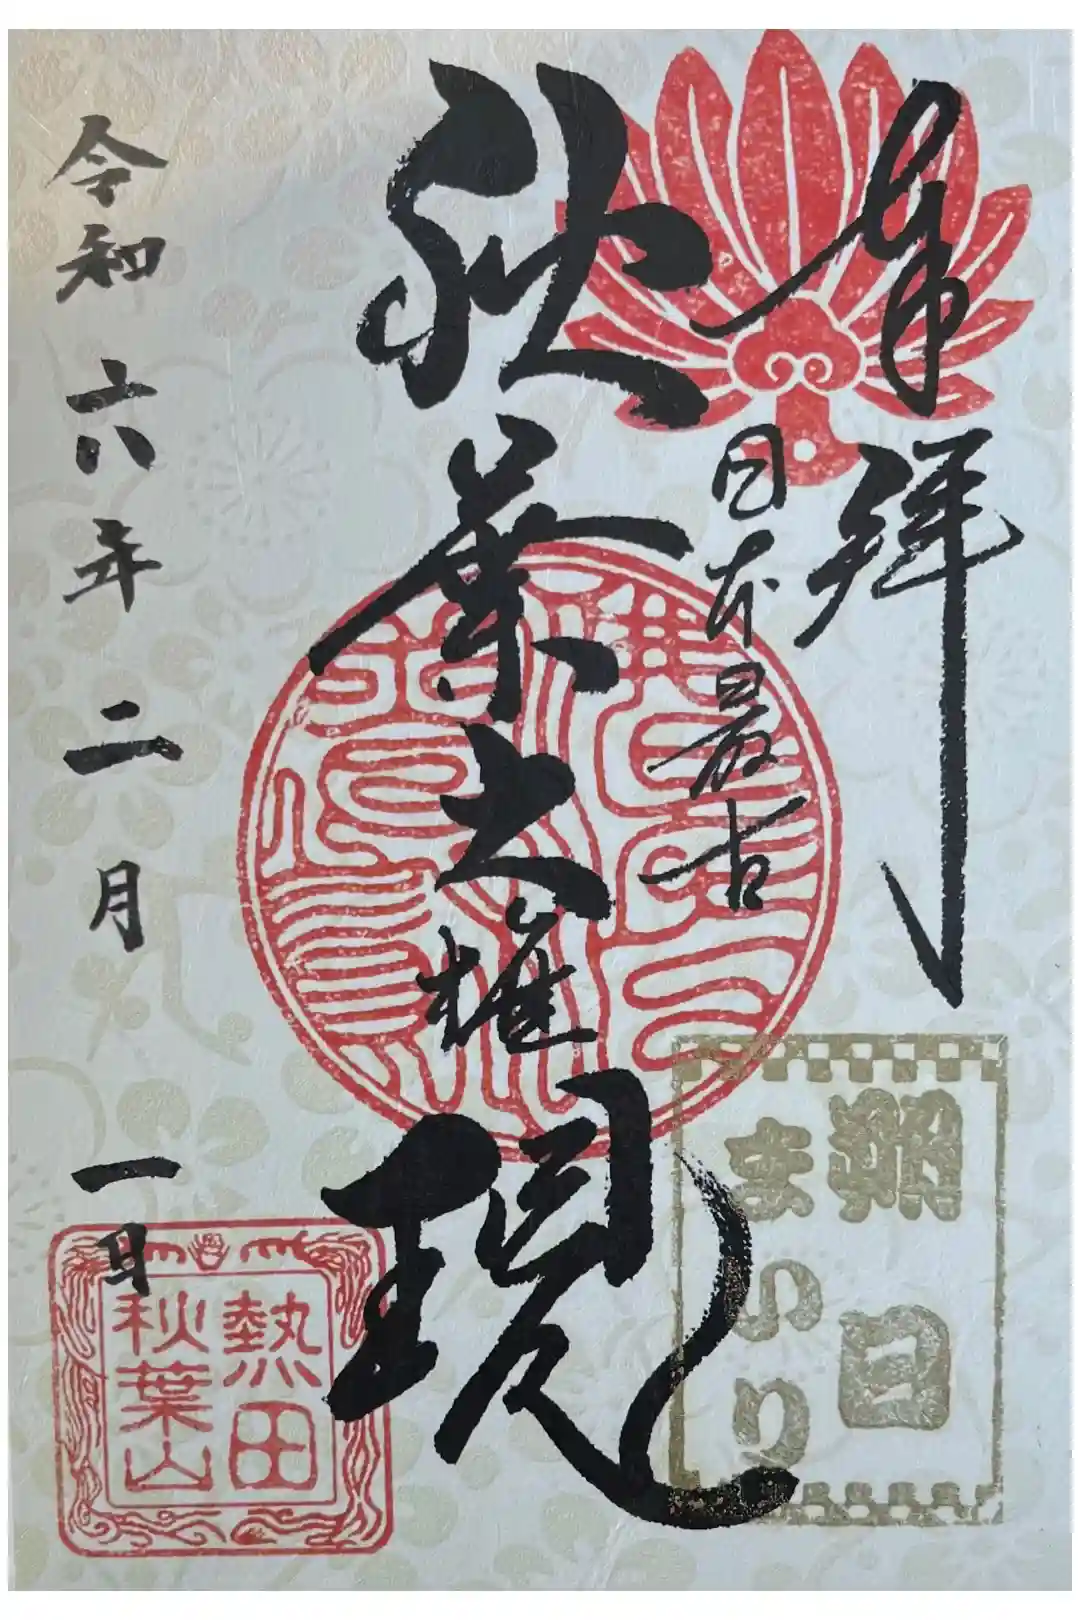 奉拝
日本最古
秋葉大権現
令和六年二月一日
朔日
まいり
熱田
秋葉山